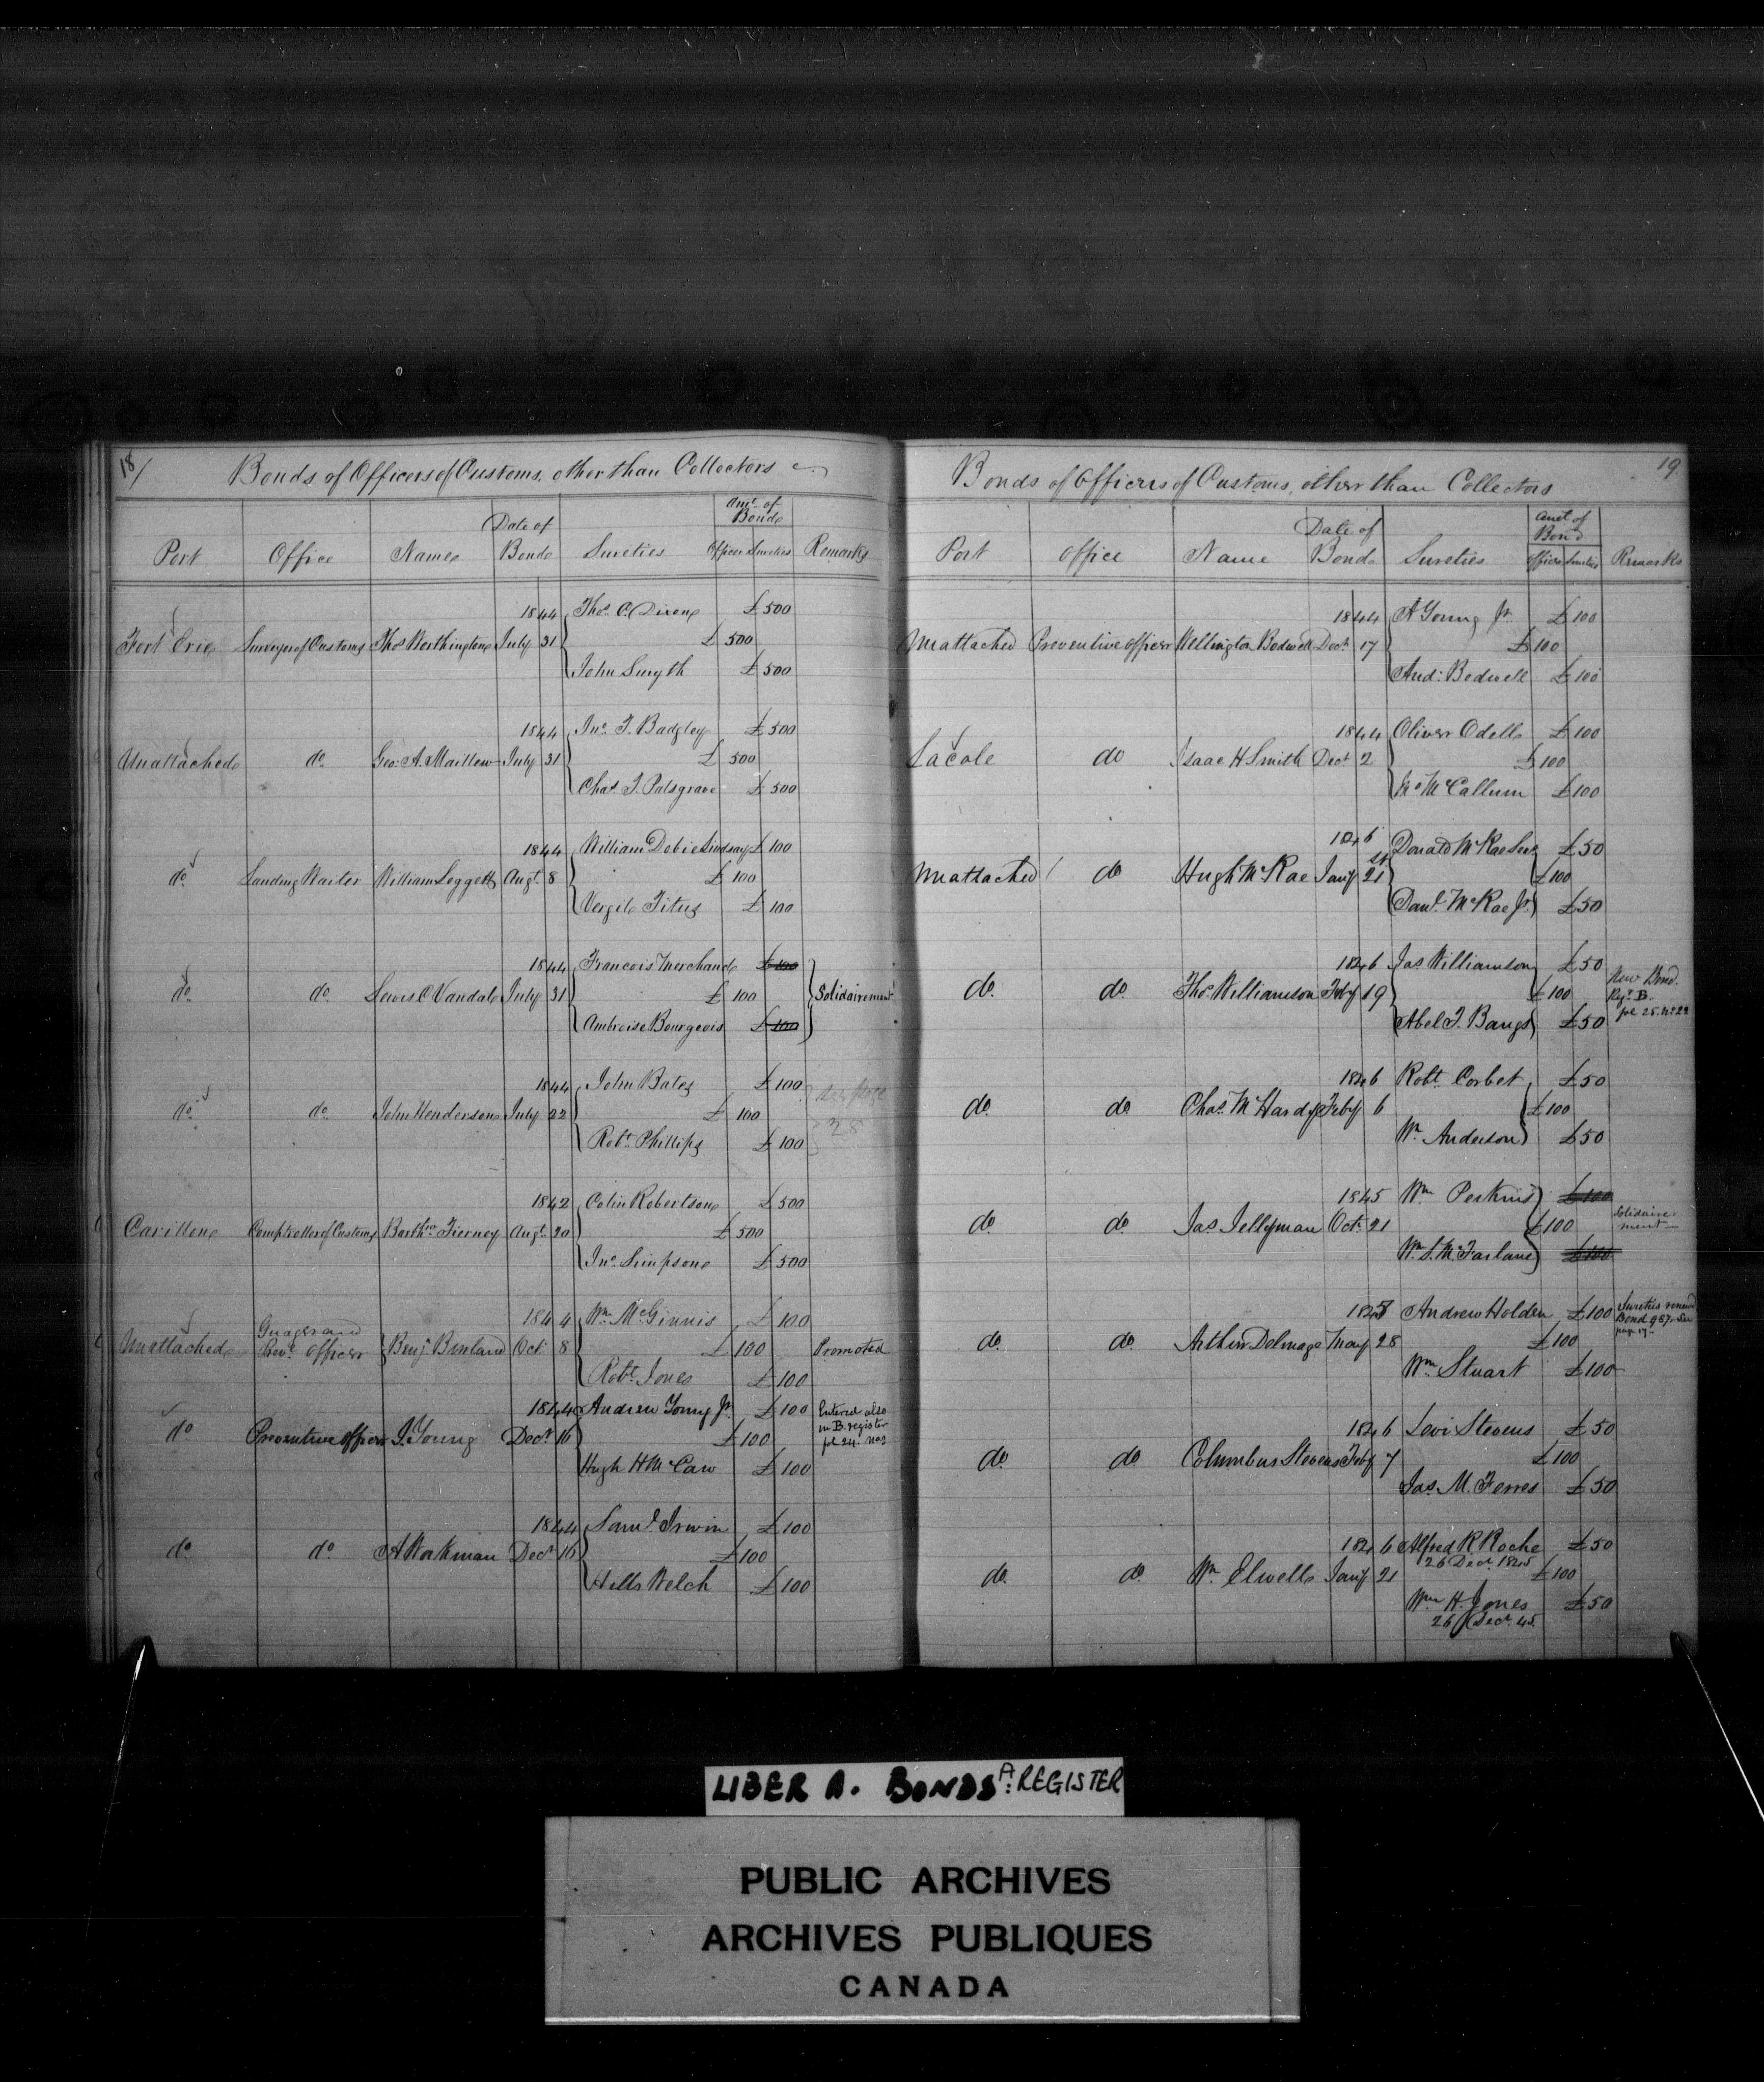 18/
Bonds of Officers of Customs, other than Collectors
Port Office Name Date of Bond Sureties Amt. of Bond Officer Sureties Remarks
1844 Thos. C. Dixon £500
Fort Erie Surveyor of Customs Thos Worthington July 31 £500
John Smyth £500
1844 Jno. T. Badgley £500
Unattached do Geo: A. Maillow July 31 £500
Chas. T. Palsgrave £500
1844 William Debie Lindsay £100
do Landing Waiter William Leggett Augt. 8 £100
Vergil Titus £100
1844 Francois Merchand £100
do do Lewis C Vandal July 31 £100 Solidairement
Ambroise Bourgeois £100
1844 John Bates £100 See page
do do John Henderson July 22 £100 28
Robt. Phillips £100
1842 Colin Robertson £500
Carillon Comptroller of Customs Barthw. Tierney Augt. 20 £500
Jno. Simpson £500
1844 Wm McGinnis £100
Unattached Guager and Prevt. Officer Benj. Burland Oct 8 £100 Promoted
Robt. Jones £100
1844 Andrew Young Jr. £100 Entered also
in B. register
do Preventive officer J. Young Decr 16 £100 fol 24. No2
Hugh H McCaw £100
1844 Saml. Irwin £100
do do A Workman Decr 16 £100
Hills Welch £100
19.
Bonds of Officers of Customs, other than Collectors
Port Office Name Date of Bond Sureties Amt of Bond Officer Sureties Remarks
1844 A Young Jr. £100
Unattached Preventive officer Wellington Bedwell Decr. 17 £100
And: Bedwell £100
1844 Oliver Odell £100
Lacole do Isaac H Smith Decr 2 £100
McCallum £100
1846 Donald McRae Senr £50
Unattached do Hugh McRae Jany 21st £100
Danl. McRae Jr. £50
1846 Jas Williamson £50
do do Thos. Williamson Feby 19 £100 New Bond.
Regr. B.
Abel T. Bangs £50 fol 25. No 22
1846 Robt. Corbet £50
do do Chas. McHardy Feby 6 £100
Wm Anderson £50
1845 Wm Perkins £100
do do Jas. Jellyman Oct. 21 £100 Solidaire-
ment
Wm. S. McFarlane £100
Andrew Holden £100 Sureties renewd
Bond 957. See
page 17
do do Arthur Delmage May 28 £100
Wm Stuart £100
1846 Levi Stevens £50
do do Columbus Stevens Feby 7 £100
Jas. M. Ferres £50
1846 Alfred R Roche £50
26 Decr. 1845
do do Wm Elwell Jany 21 £100
Wm H. Jones £50
26 Decr. 45
LIBER A. BONDS A. REGISTER
PUBLIC ARCHIVES
ARCHIVES PUBLIQUES
CANADA